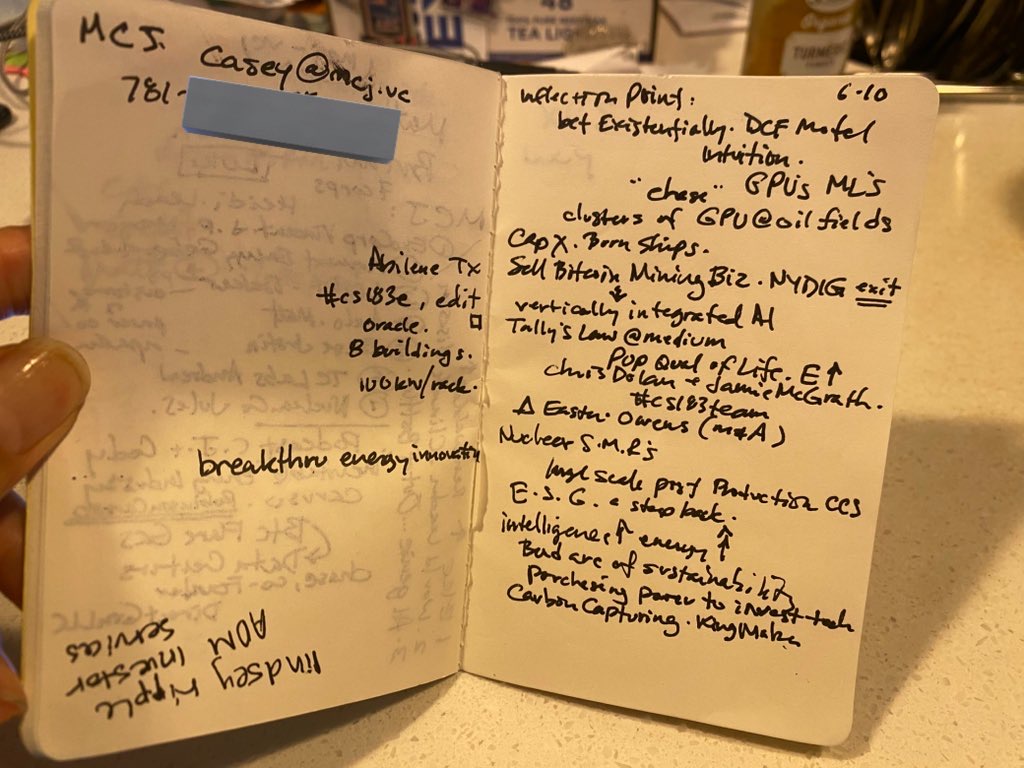 MCJ.
Casey@mcj.vc
781-
Abilene Tx
#cs183e, edit
oracle.
8 buildings.
100kw/rack.
breakthru energy innovation
lindsey ripple
AOM investor
services
6-10
inflection Point:
bet Existentially. DCF Model
intuition.
"chase" GPU's ML's
clusters of GPU@oilfields
CapX. Born Ships.
Sell Bitcoin Mining Biz. NYDIG exit
vertically integrated AI
Tally's Law @medium
Pop Qual of Life. E↑
Chris Dolan + Jamie McGrath.
#CS183team
Δ Easter. Owens (M&A)
Nuclear S.M.R's
large scale proof Production CCS
E.S.G. a step back.
intelligence↑ energy ↑
Bend arc of sustainability
Purchasing power to invest tech
Carbon Capturing. KingMaker
TEA LIGHTS
TURMERIC